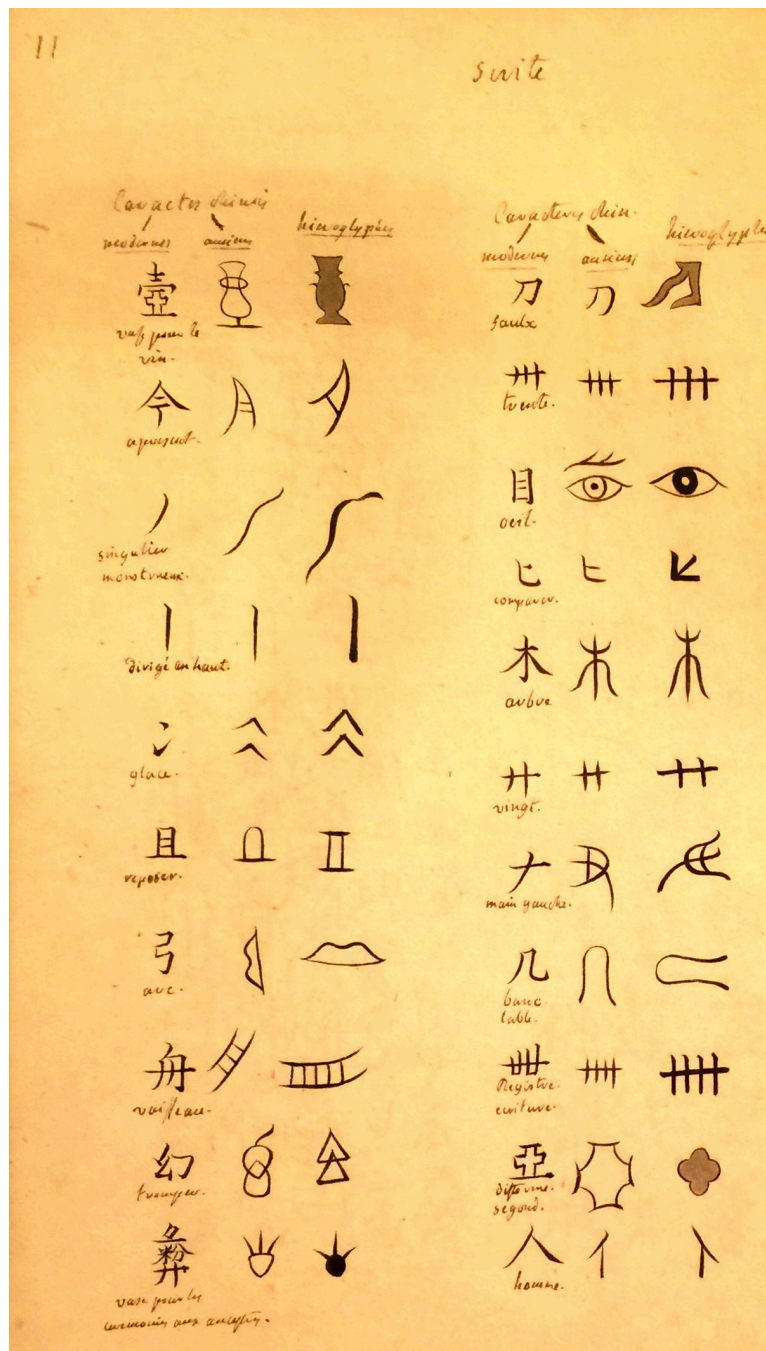 11
Suite
Caracteres chinois
modernes anciens hieroglyphes
壺
vase pour le
vin.
今
apresent.
丿
singulier
monstrueux.
丨
divigé en haut.
冫
glace.
且
reposer.
弓
arc.
舟
vaisseau.
幻
tromper.
彝
vase pour les
ceremonies aux ancestres.
Caracteres chin.
modernes anciens hieroglyphes
刀
faulx
卅
trente.
目
oeil.
匕
comparer.
木
arbre
廾
vingt.
𠂇
main gauche.
几
banc
table.
卌
Registre.
ecriture.
亞
difforme.
segond.
人
homme.